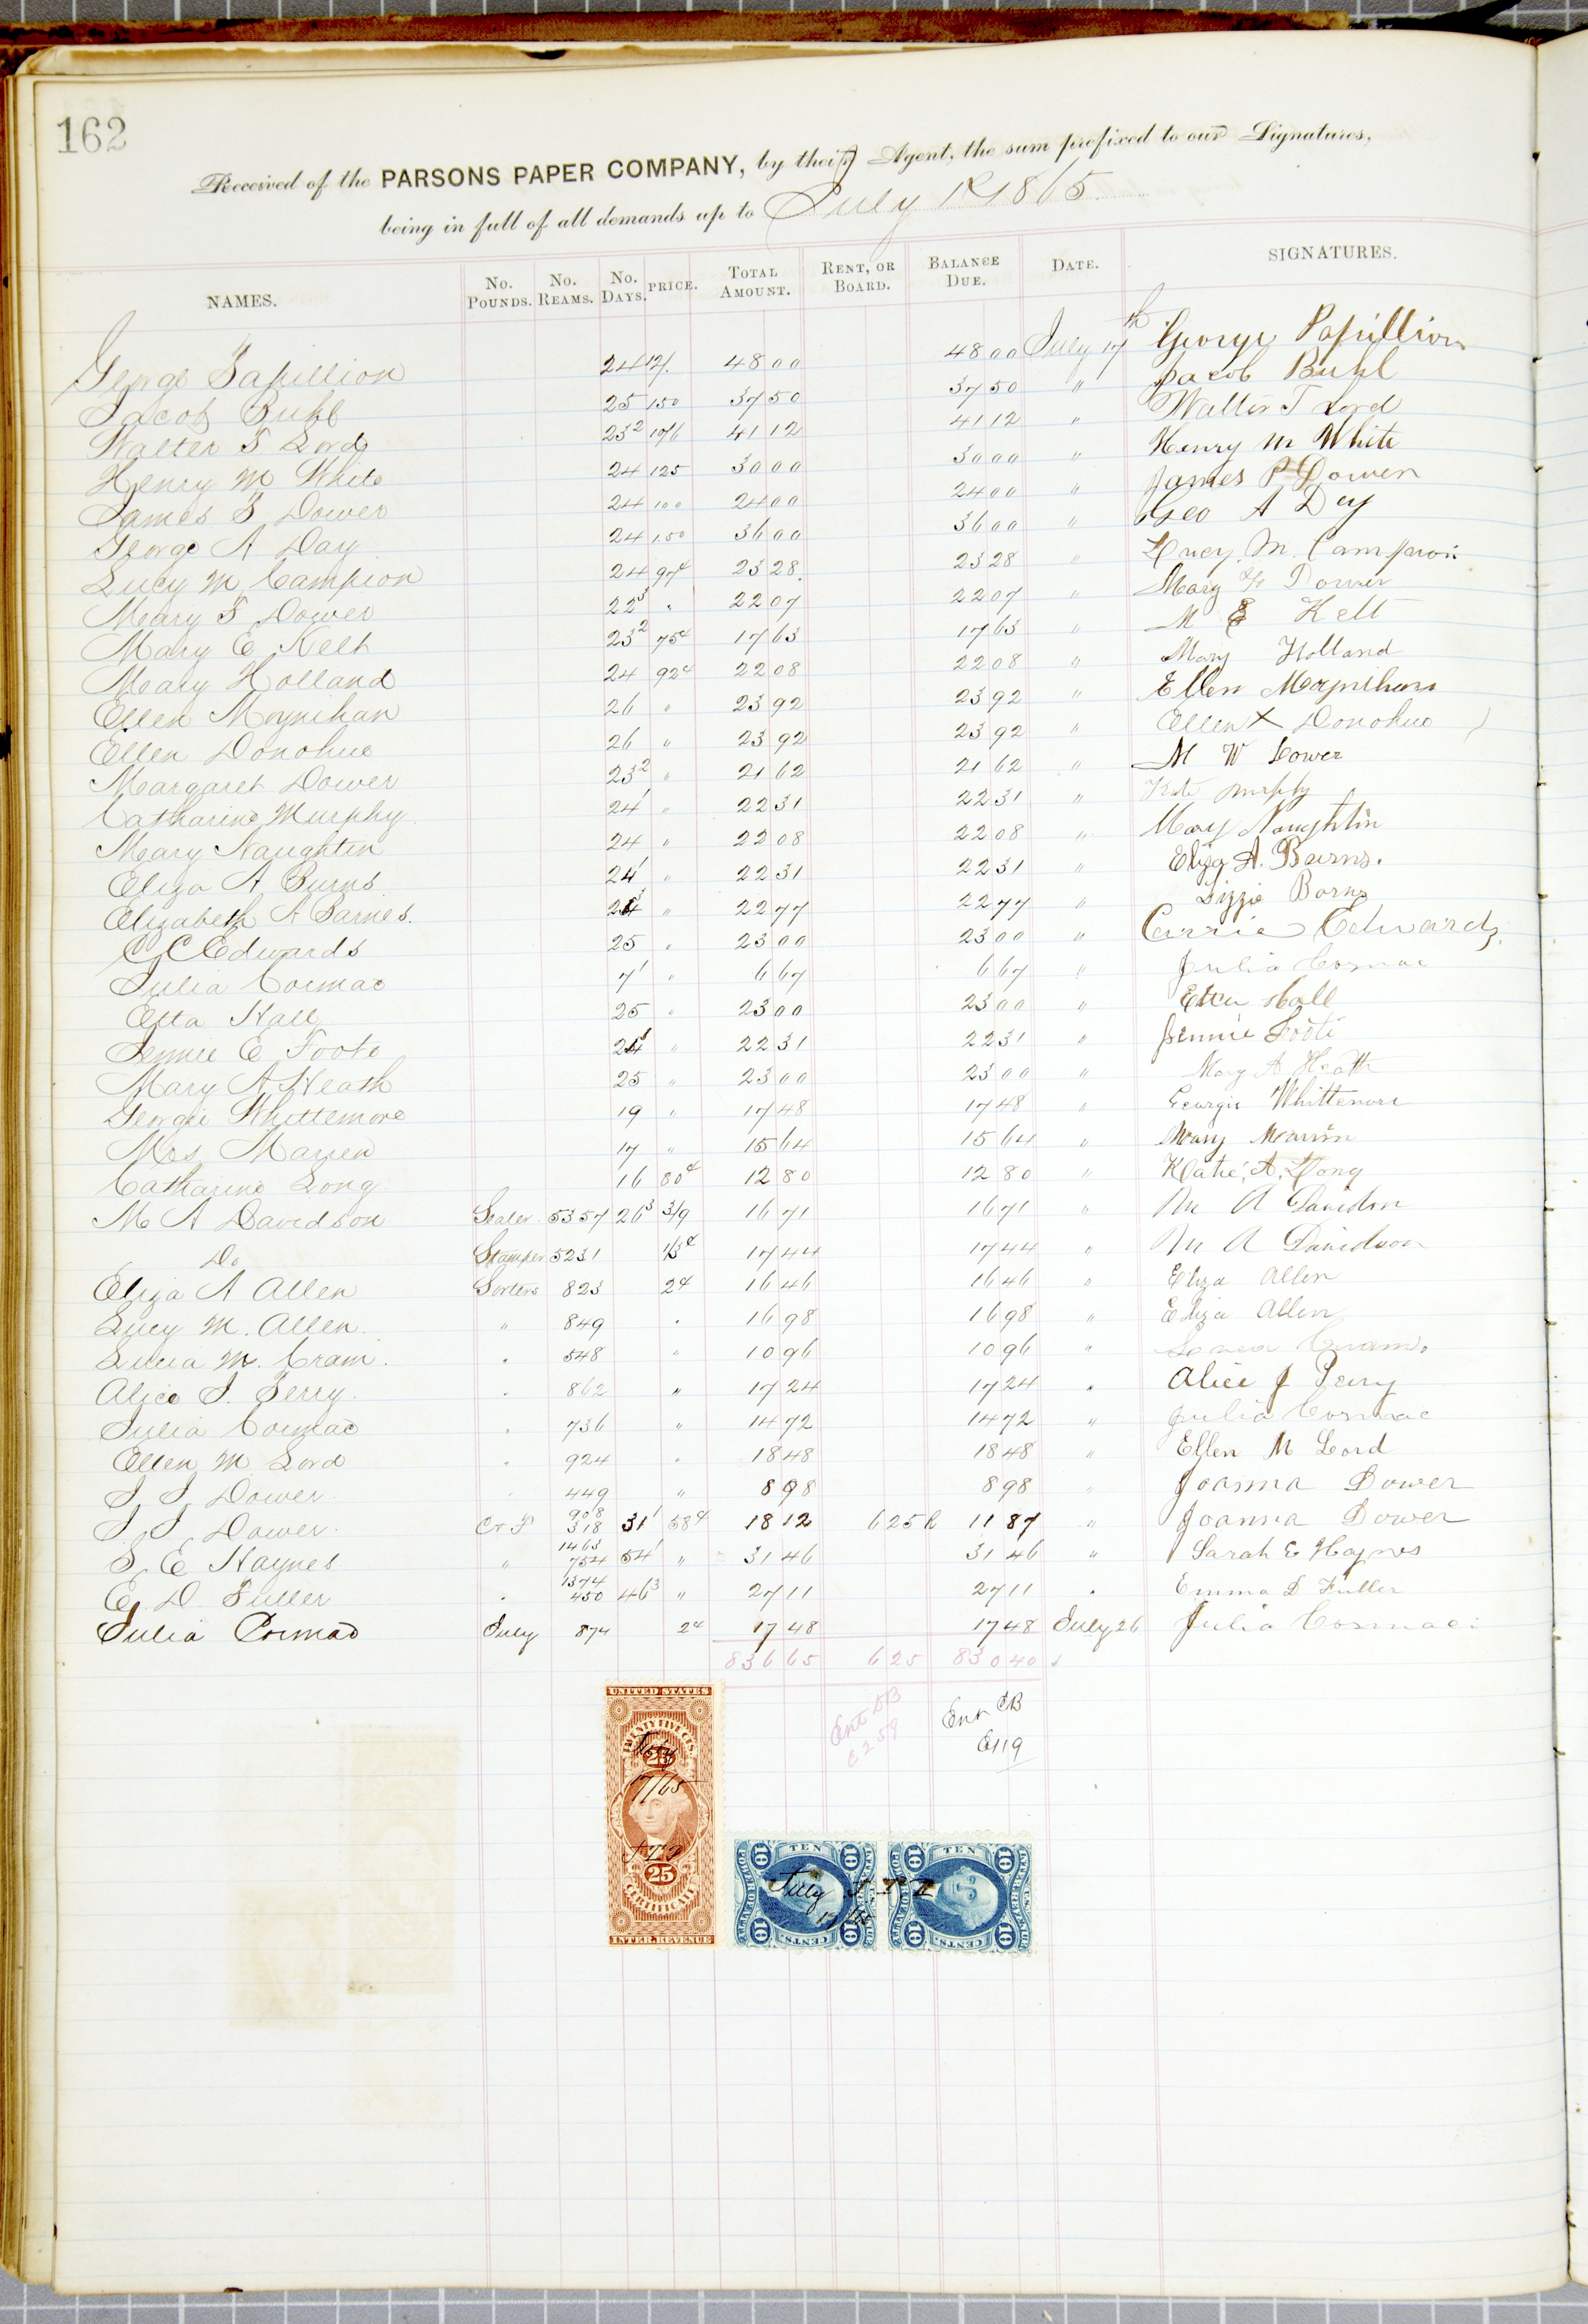 162
Received of the PARSONS PAPER COMPANY, by their Agent, the sum prefixed to our Signatures,
being in full of all demands up to July 1st 1865.
NAMES. No. POUNDS. No. REAMS. No. DAYS. PRICE. TOTAL AMOUNT. RENT, OR BOARD. BALANCE DUE. DATE. SIGNATURES.
George Papillion 24 12/. 48 00 48 00 July 17th George Papillion
Jacob Buhl 25 150 37 50 37 50 " Jacob Buhl
Walter F Lord 23 2 10/6 41 12 41 12 " Walter F Lord
Henry M White 24 125 30 00 30 00 " Henry M White
James P Dower 24 100 24 00 24 00 " James P Dower
George A Day 24 150 36 00 36 00 " Geo A Day
Lucy M Campion 24 97¢ 23 28 23 28 " Lucy M. Campion
Mary F Dower 22 3 " 22 07 22 07 " Mary F Dower
Mary E Kelt 23 2 75¢ 17 63 17 63 " M E Kelt
Mary Holland 24 92¢ 22 08 22 08 " Mary Holland
Ellen Moynihan 26 " 23 92 23 92 " Ellen Moynihan
Ellen Donohue 26 " 23 92 23 92 " Ellen X Donohue
Margaret Dower 23 2 " 21 62 21 62 " M W Dower
Catharine Murphy 24 1 " 22 31 22 31 " Kate Murphy
Mary Naughten 24 " 22 08 22 08 " Mary Naughtin
Eliza A Burns 24 1 " 22 31 22 31 " Eliza A. Burns.
Elizabeth A Barnes. 24 3 " 22 77 22 77 " Lizzie Barns
C C Edwards 25 " 23 00 23 00 " Carrie Edwards.
Julia Cormac 7 1 " 6 67 6 67 " Julia Cormac
Etta Hall 25 " 23 00 23 00 " Etta Hall
Jennie E Foote 24 1 " 22 31 22 31 " Jennie Foote
Mary A Heath 25 " 23 00 23 00 " Mary A Heath
Georgie Whittemore 19 " 17 48 17 48 " Georgie Whittemore
Mrs 17 " 15 64 15 64 " Mary
Catharine Long 16 80¢ 12 80 12 80 " Katie, A, Long
M A Davidson Sealer 5357 26 3 3/9 16 71 16 71 " M A Davidson
Do Stamper 5231 1/3¢ 17 44 17 44 " M A Davidson
Eliza A Allen Sorters 823 2¢ 16 46 16 46 " Eliza Allen
Lucy M. Allen. " 849 " 16 98 16 98 " Eliza Allen
M. Cram. " 548 " 10 96 10 96 " Cram.
Alice J. Perry. " 862 " 17 24 17 24 " Alice J Perry
Julia Cormac " 736 " 14 72 14 72 " Julia Cormac
Ellen M Lord " 924 " 18 48 18 48 " Ellen M Lord
J J Dower. 449 " 8 98 8 98 " Joanna Dower
J J Dower. C & F 908 318 31 1 58¢ 18 12 6 25 R 11 87 " Joanna Dower
S, E Haynes " 1463 754 54 1 " 31 46 31 46 " Sarah E Haynes
E. D. Fuller " 1374 450 46 3 " 27 11 27 11 " Emma D Fuller
Julia Cormac July 874 2¢ 17 48 17 48 July 26 Julia Cormac.
836 65 6 25 830 40
Ent DB E 259
Ent CB
E119
UNITED STATES
TWENTY FIVE CTS.
25
July
17/65
25
CERTIFICATE
INTER. REVENUE
TEN
10 10
CENTS.
10 10
July
17/65
TEN
10 10
CENTS.
10 10